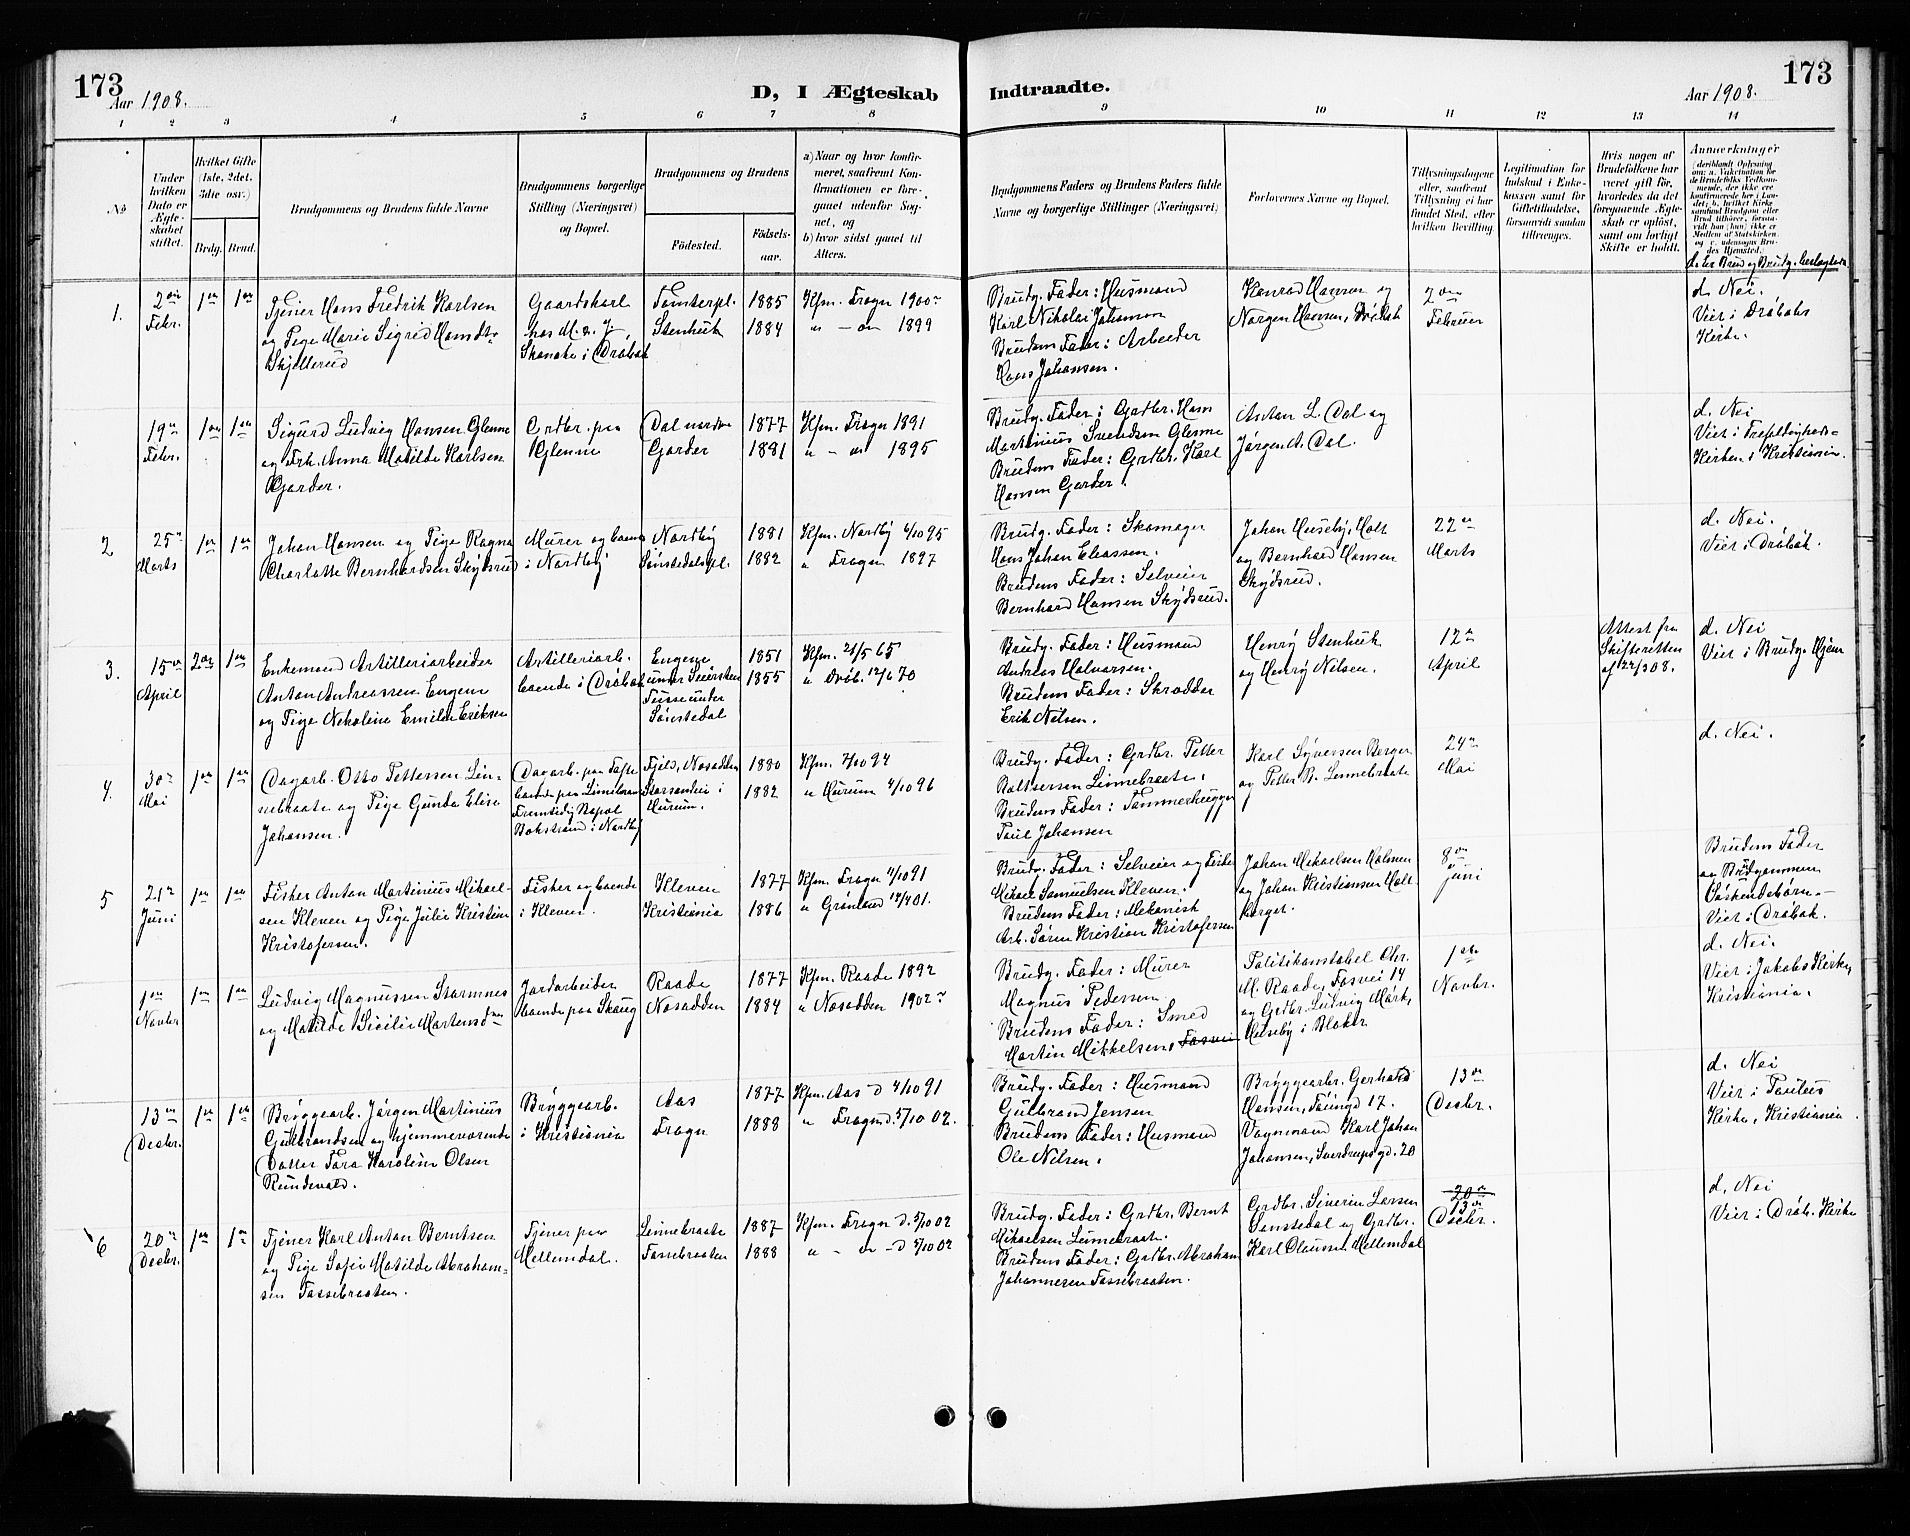 173
Aar 1908.
D, I Ægteskab
Indtraadte.
Aar 1908.
173
1 2 3 4 5 6 7 8 9 10 11 12 13 14
No
Under
hvilken
Dato er
Ægte-
skabet
stiftet.
Hvilket Gifte
(1ste, 2det,
3die osv.)
Brdg.
Brud.
Brudgommens og Brudens fulde Navne
Brudgommens borgerlige
Stilling (Næringsvei)
og Bopæl.
Brudgommens og Brudens
Födested.
Födsels-
aar.
a) Naar og hvor konfir-
meret, saafremt Kon-
firmationen er fore-
gaaet udenfor Sog-
net, og
b) hvor sidst gaaet til
Alters.
Brudgommens Faders og Brudens Faders fulde
Navne og borgerlige Stillinger (Næringsvei)
Forlovernes Navne og Bopæl.
Tillysningsdagene
eller, saafremt
Tillysning ei har
fundet Sted, efter
hvilken Bevilling.
Legitimation for
Indskud i Enke-
kassen samt for
Giftetilladelse,
forsaavidt saadan
tiltrænges.
Hvis nogen af
Brudefolkene har
været gift för,
hvorledes da det
foregaaende Ægte-
skab er oplöst,
samt om lovligt
Skifte er holdt.
Anmærkninger
(deriblandt Oplysning
om: a. Vakcination for
de Brudefolks Vedkom-
mende, der ikke ere
konfirmerede her i Lan-
det; b. hvilket Kirke-
samfund Brudgom eller
Brud tilhörer, forsaa-
vidt han (hun) ikke er
Medlem af Statskirken,
og c. udensogns Bru-
des Hjemsted.)
d. Er Brud og Brudg. beslægtede
1.
2den
Febr.
1ste
1ste
Tjener Hans Fredrik Karlsen
og Pige Marie Sigrid Hansdtr
Skjellerud
Gaardskarl
hos
Skanake i Dröbak
Tomterpl.
Stenhuk
1885
1884
Kfm. Frogn 1900
" — " 1899
Brudg. Fader: Husmand
Karl Nikolai Johanson
Brudens Fader: Arbeider
Hans Johansen.
Konrad Hansen og
Norgen Hansen, Dröbak
2den
Februar
d. Nei.
Viet i Dröbaks
Kirke.
19de
Febr.
1ste
1ste
Sigurd Ludvig Hansen Glenne
og Frk. Anna Matilde Karlsen
Garder.
Grdbr. paa
Glenne
Dal nordre
Garder
1877
1881
Kfm. Frogn 1891
" — " 1895
Brudg. Fader: Grdbr. Hans
Martinius Svendsen Glenne
Brudens Fader: Grdbr. Karl
Hansen Garder.
Anton L. Dal og
Jörgen A. Dal.
d. Nei
Viet i Trefoldigheds-
Kirken i Kristiania.
2
25de
Marts
1ste
1ste
Johan Hansen og Pige Ragna
Charlotte Bernhardsen Skydsrud
Murer og boende
i Nordby
Nordby
Sönstedalspl.
1881
1882
Kfm. Nordby 6/10 95
" Frogn 1897
Brudg. Fader: Skomager
Hans Johan Eliassen.
Brudens Fader: Selveier
Bernhard Hansen Skydsrud.
Johan Huseby, Holt
og Bernhard Hansen
Skydsrud.
22de
Marts
d. Nei.
Viet i Dröbak.
3.
15de
April
2den
1ste
Enkemand Artilleriarbeider
Anton Andreassen Engene
og Pige Nikoline Emilie Eriksen
Artilleriarb.
boende i Dröbak
Engene
under Seiersten
Teisse under
Sönstedal
1851
1855
Kfm. 21/5 65
" Dröb. 12/6 70
Brudg. Fader: Husmand
Andreas Halvorsen.
Brudens Fader: Skrædder
Erik Nilsen.
Henry Stenhuk
og Henry Nilsen.
12te
April
Attest fra
Skifteretten
af 22/3 08.
d. Nei
Viet i Brudg. Hjem
4.
30te
Mai
1ste
1ste
Dagarb. Otto Pettersen Lin-
nebraate og Pige Gunda Elise
Johansen.
Dagarb. paa Tofte
boende paa Linnebraate
Fremtidig Bopæl
Bokstrand i Nordby
Fjeld, Nesodden
Storsand i
Hurum.
1880
1882
Kfm. 7/10 94
" Hurum 4/10 96
Brudg. Fader: Grdbr. Petter
Baltsersen Linnebraate.
Brudens Fader: Tømmerhugger
Paul Johansen
Karl Syversen Berger
og Petter B. Linnebraate
24de
Mai
d. Nei.
5
21de
Juni
1ste
1ste
Fisker Anton Martinius Mikael-
sen Kleven og Pige Julie Kristine
Kristofersen.
Fisker og boende
i Kleven.
Kleven
Kristiania
1877
1886
Kfm. Frogn 4/10 91
" Grönland 14/4 01.
Brudg. Fader: Selveier og Fisker
Mikael Samuelsen Kleven.
Brudens Fader: Mekanisk
Arb. Sören Kristian Kristofersen
Johan Mikaelsen Holmen
og Johan Kristiansen Holt-
berget.
8de
Juni
Brudens Fader
og Brudgommen
Söskendebörn.
Viet i Dröbak.
1ste
Novbr
1ste
1ste
Ludvig Magnussen Stormnes
og Matilde Sicilie Martensdtr
Jordarbeider
boende paa Skaug
Raade
Nesodden
1877
1884
Kfm. Raade 1892
" Nesodden 1902
Brudg. Fader: Murer
Magnus Pedersen
Brudens Fader: Smed
Martin Mikkelsen, Fosvei
Politikonstabel Chr.
M. Raade, Fosvei 14
og Grdbr. Ludvig Mörk,
Huseby i Blaker
1ste
Novbr.
d. Nei.
Viet i Jakobs Kirke,
Kristiania.
13de
Decbr.
1ste
1ste
Bryggearb. Jörgen Martinius
Gulbrandsen og hjemmeværende
Datter Tora Karoline Olsen
Rundevold.
Bryggearb.
i Kristiania
Aas
Frogn
1877
1888
Kfm. Aas d 4/10 91
" Frogn d. 5/10 02.
Brudg. Fader: Husmand
Gulbrand Jensen
Brudens Fader: Husmand
Ole Nilsen.
Bryggearb. Gerhard
Hansen, 17.
Vognmand Karl Johan
Johansen, Sverdrupsgd. 20
13de
Decbr.
d. Nei
Viet i Paulus
Kirke, Kristiania.
6
20de
Decbr.
1ste
1ste
Tjener Karl Anton Berntsen
og Pige Sofie Matilde Abraham-
sen Fossebraaten.
Tjener paa
Mellemdal.
Linnebraate
Fossebraaten
1887
1888
Kfm. Frogn d. 5/10 02
" — " — d 5/10 02
Brudg. Fader: Grdbr. Bernt
Mikaelsen Linnebraate.
Brudens Fader: Grdbr. Abraham
Johannesen Fossebraaten.
Grdbr. Siverin Larsen
Sönstedal og Grdbr.
Karl Olausen Mellemdal
20de
13de
Decbr.
d. Nei
Viet i Dröb. Kirke